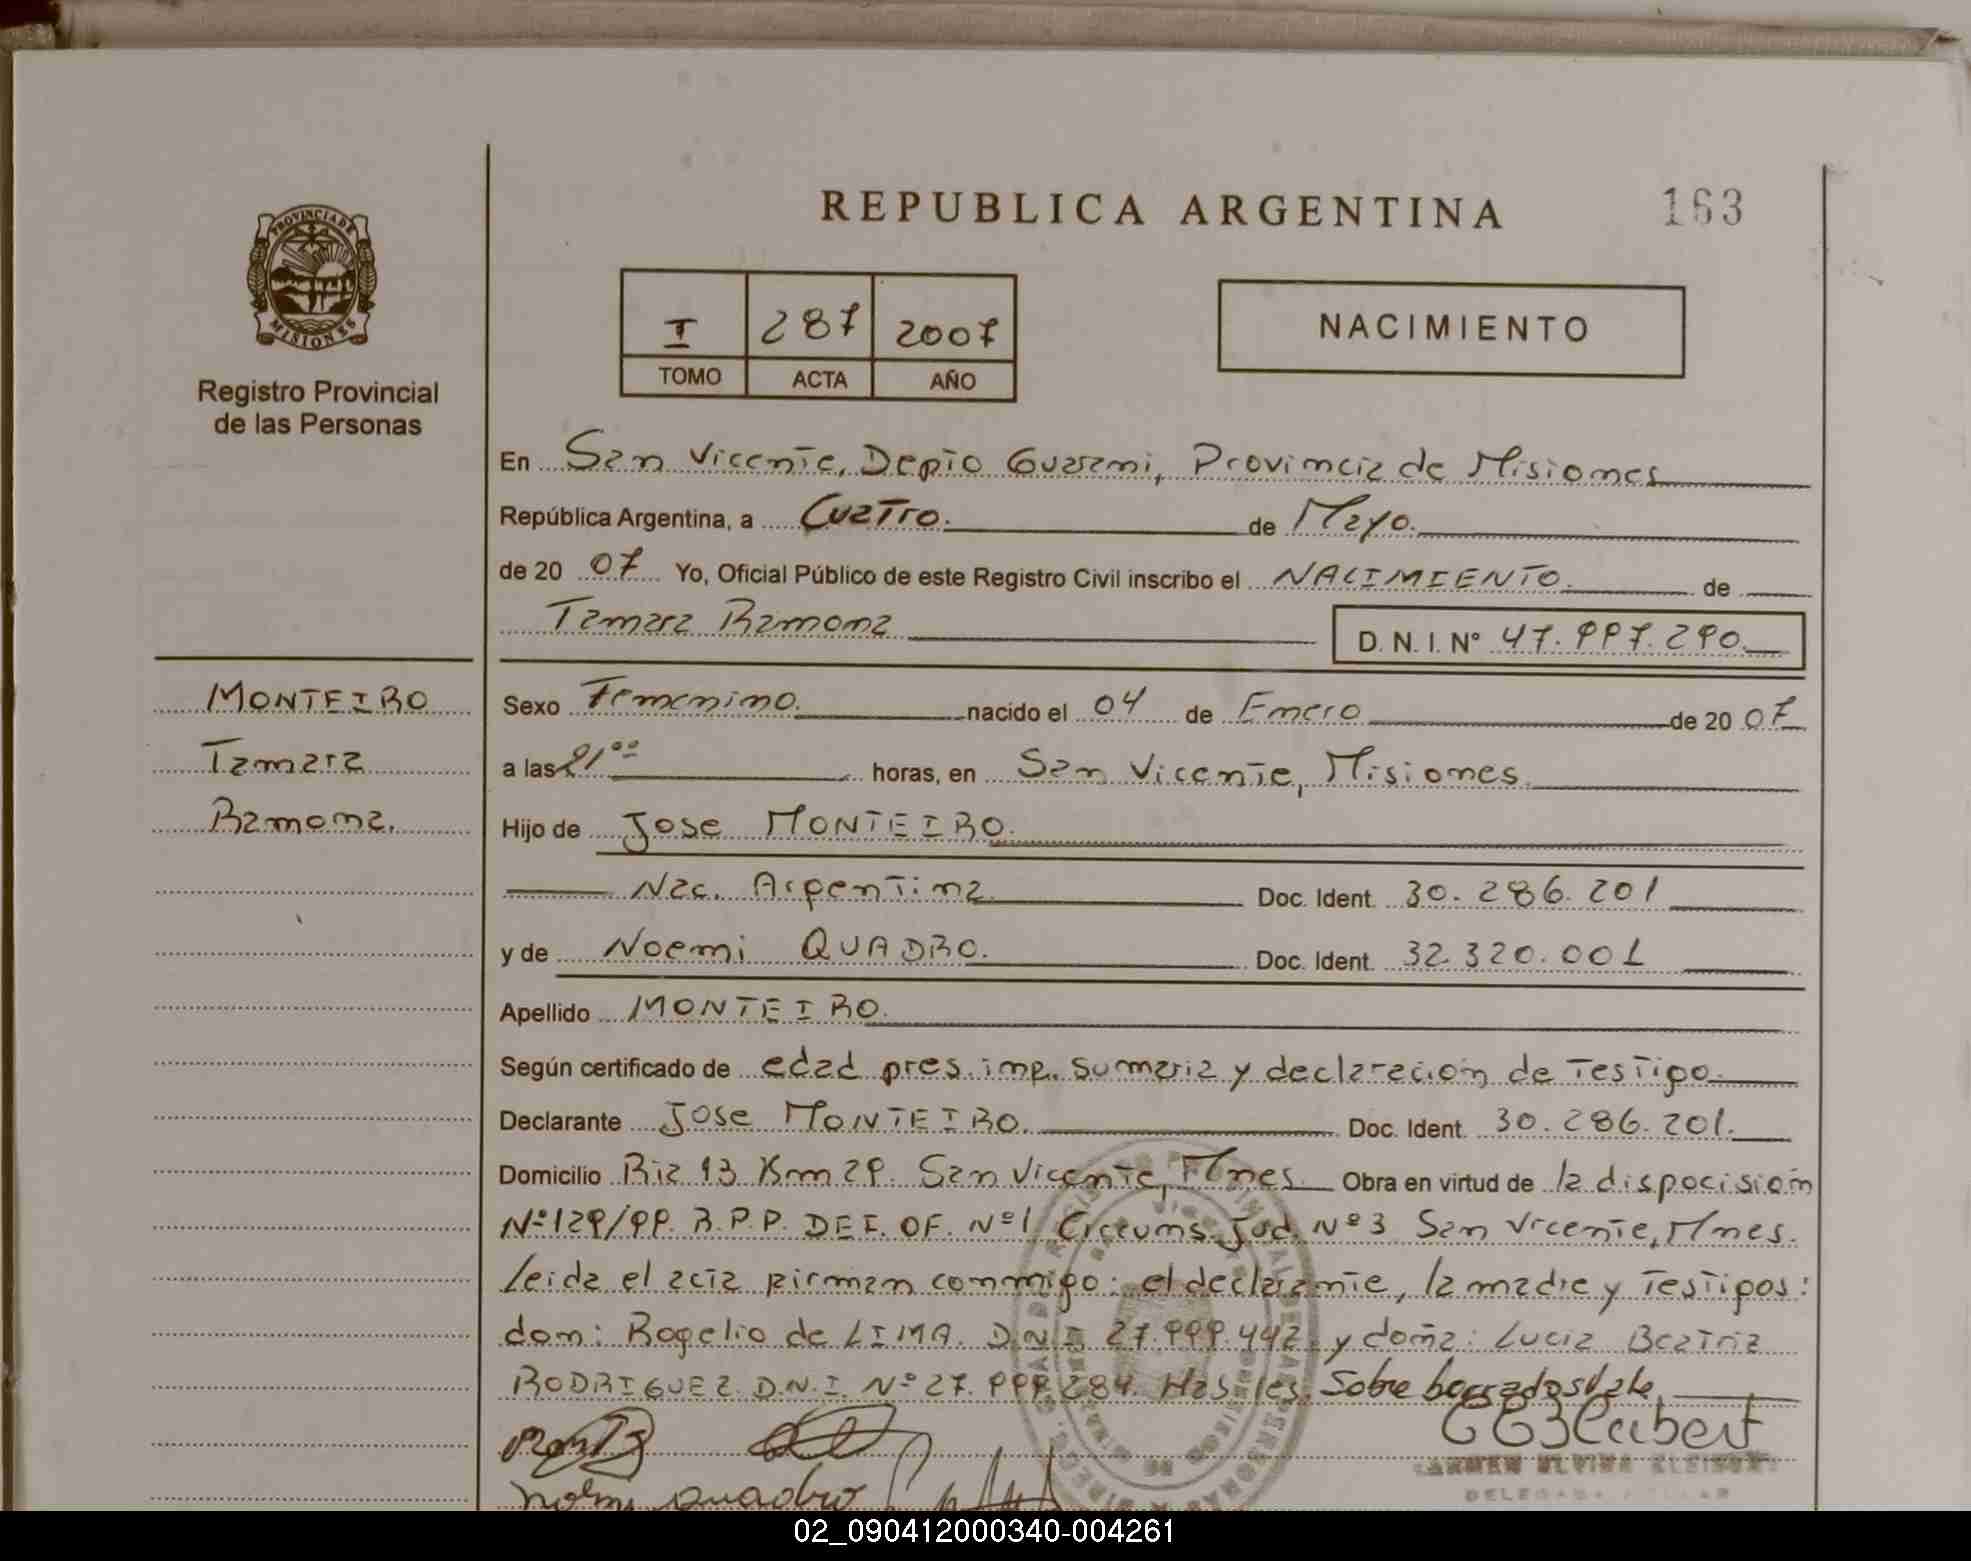 REPUBLICA ARGENTINA
163
PROVINCIA DE
MISIONES
Registro Provincial
de las Personas
I 287 2007
TOMO ACTA AÑO
NACIMIENTO
En San Vicente, Depto Guarani, Provincia de Misiones
República Argentina, a Cuatro. de Mayo.
de 20 07 Yo, Oficial Público de este Registro Civil inscribo el NACIMIENTO. de
Tamara Ramona
D. N. I. N° 47.997.290.
MONTEIRO
Tamara
Ramona.
Sexo Femenino. nacido el 04 de Enero de 20 07
a las 21°° horas, en San Vicente, Misiones.
Hijo de Jose MONTEIRO.
Nac. Argentina Doc. Ident. 30.286.201
y de Noemi QUADRO. Doc. Ident. 32.320.001
Apellido MONTEIRO.
Según certificado de edad pres. imp. sumaria y declaración de Testigo.
Declarante Jose MONTEIRO. Doc. Ident. 30.286.201.
Domicilio Rta 13 Km 29. San Vicente, Mnes. Obra en virtud de la dispocisión
Nº129/99. R.P.P. DEF. OF. Nº1 Circums. Jud. Nº3 San Vicente, Mnes.
Leida el acta firman conmigo: el declarante, la madre y Testigos:
don: Rogelio de LIMA. D.N.I. 27.999.442. y doña: Lucia Beatriz
RODRIGUEZ. D.N.I. Nº27.999.284. Has les. Sobre borrados Vale.
quadro
DELEGADA TITULAR
02_090412000340-004261